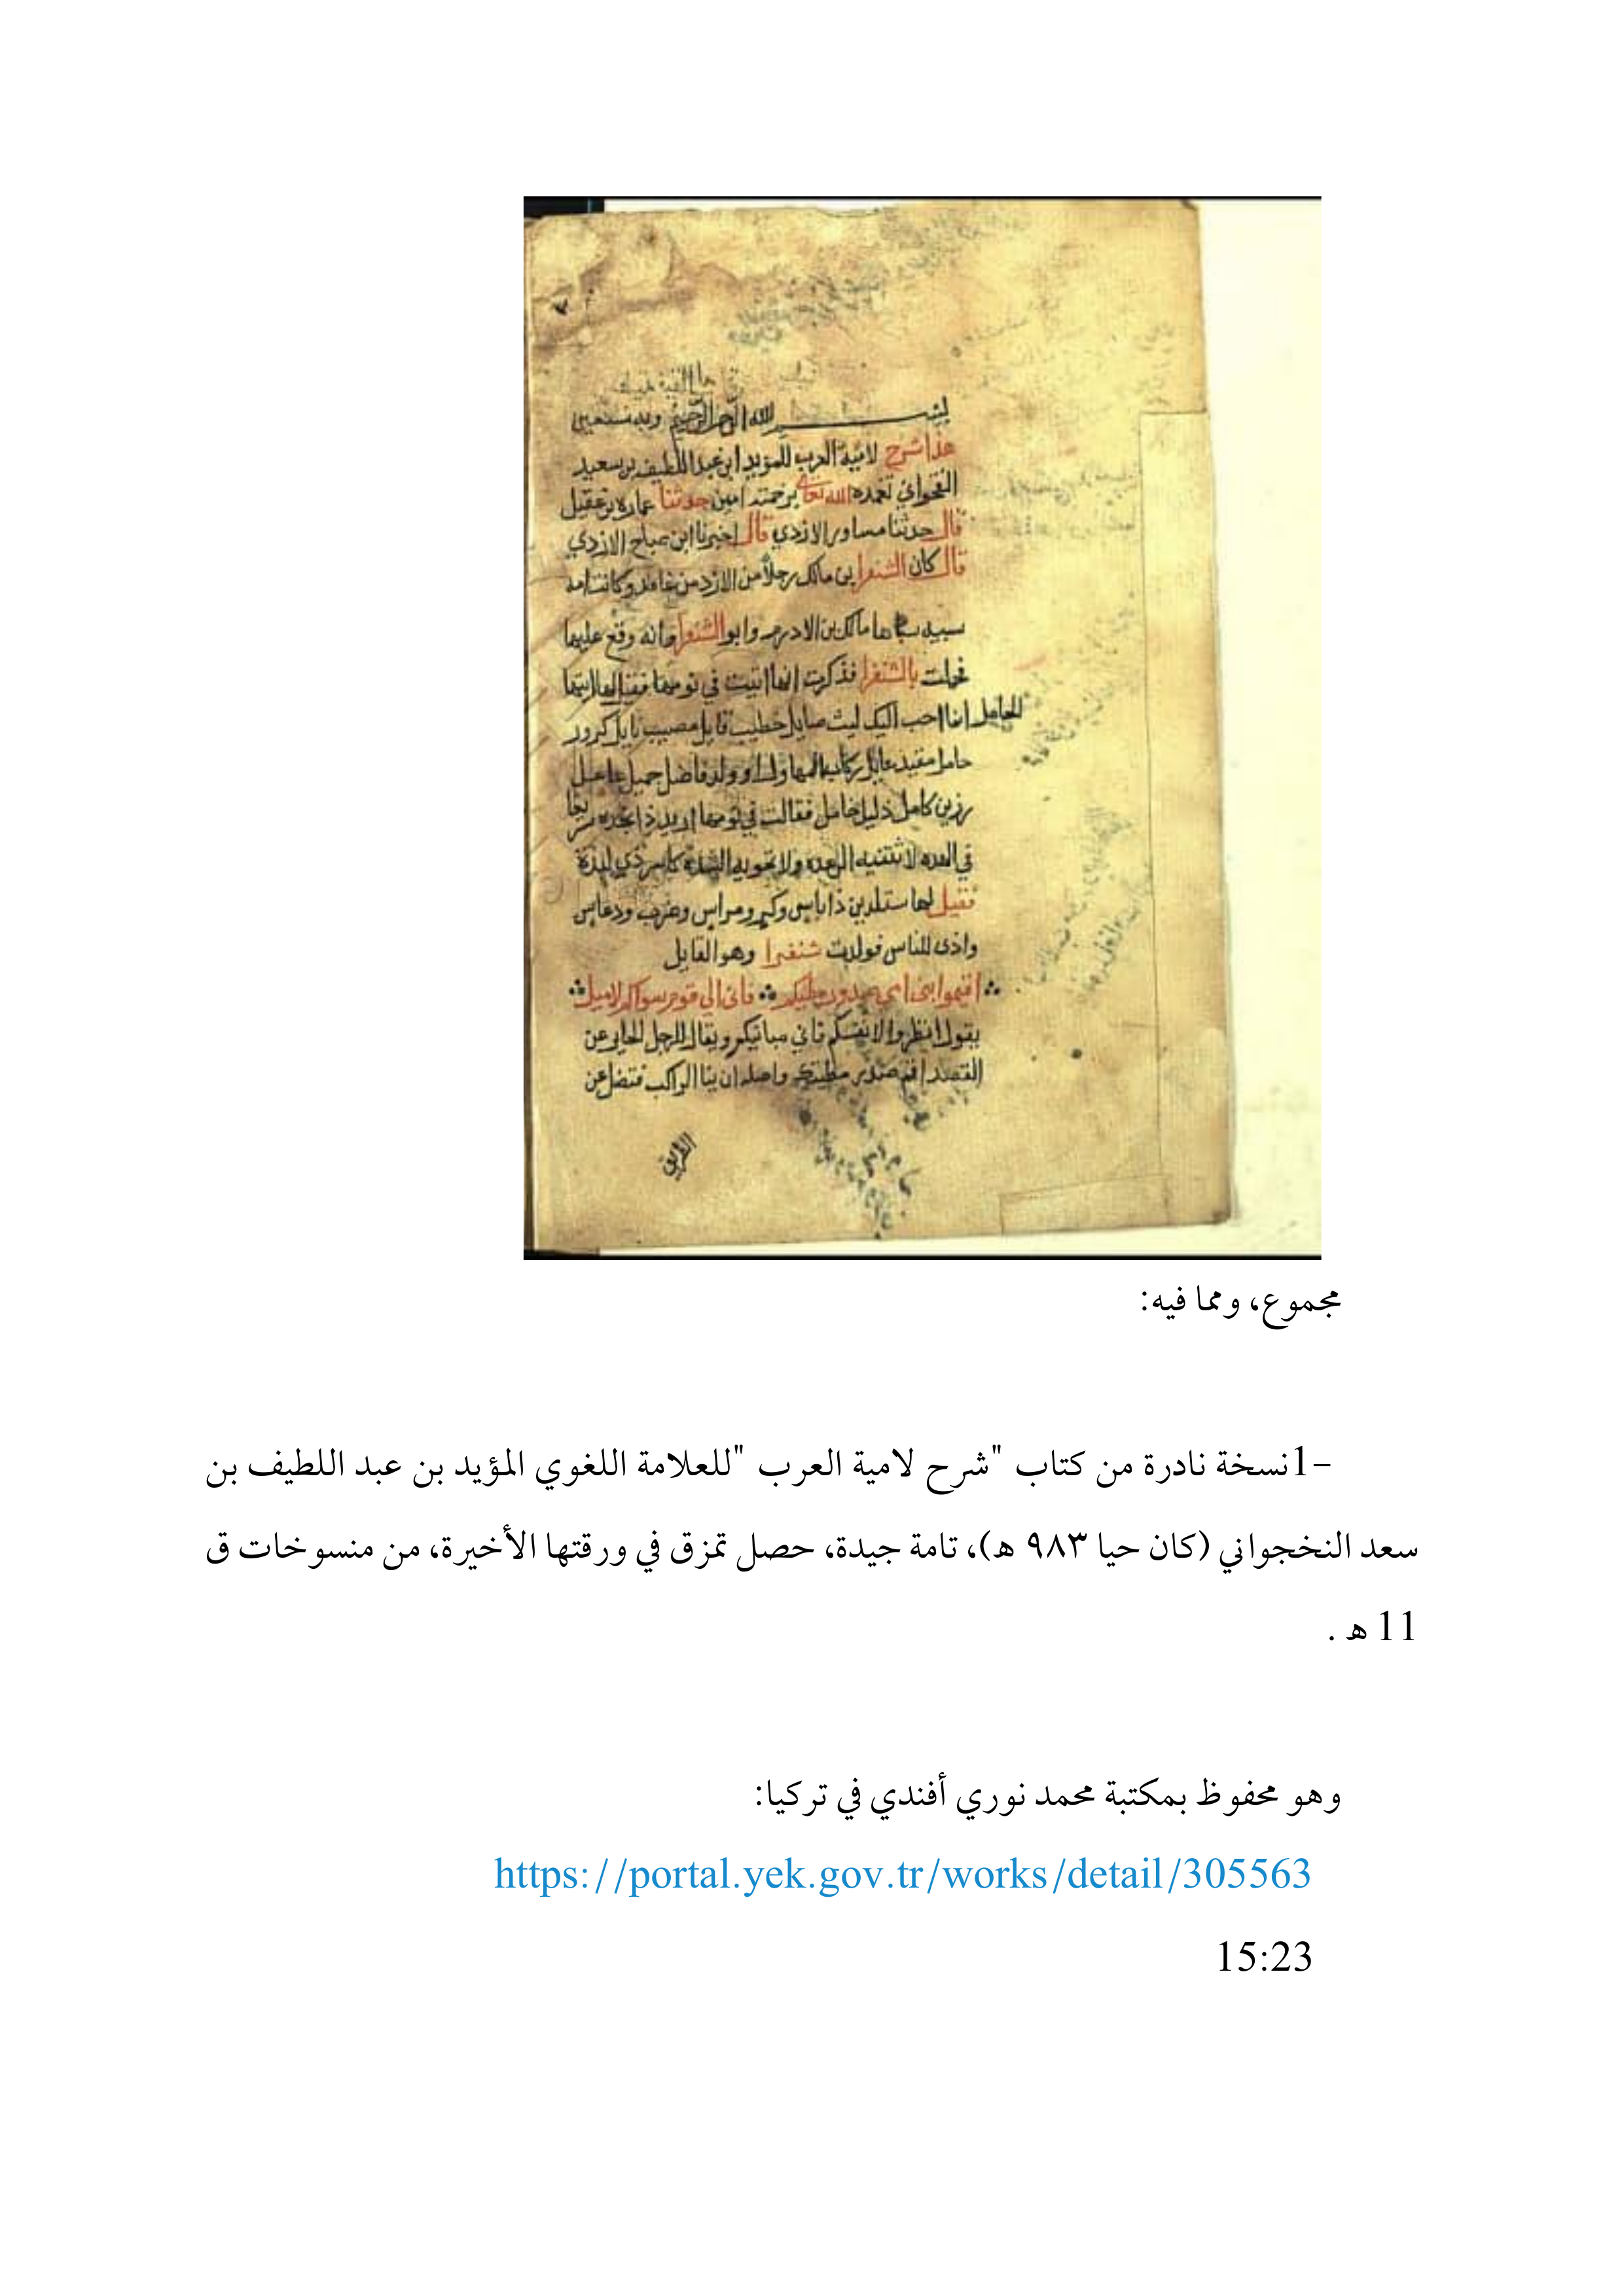 بسم الله الرحمن الرحيم وبه نستعين
هذا شرح لامية العرب للمويد ابن عبد اللطيف بن سعيد
النخجواني تغمده الله تعالى برحمته امين حدثنا عماره بن عقيل
قال حدثنا مساور الازدي قال اخبرنا ابن صباح الازدي
قال كان الشنفرا بن مالك رجلا من الازد من غامد وكانت امه
سبيه سباها مالك بن الادرم وابو الشنفرا وانه وقع عليها
فحملت بالشنفرا فذكرت انها اتيت في نومها فقيل لها ايتها
الحامل انما احب اليك ليث صايل خطيب قايل مصيب نايل كرور
حامل مفيد عايل او ولد فاضل جميل عاهل
رزين كامل ذليل خامل فقالت في نومها اريد ذا نجده سريعا
في العده لا تثنيه
فقيل لها ستلدين ذا باس وكر ومراس وحرب ودعاس
واذى للناس فولدت شنفرا وهو القايل
اقيموا بني امي صدور مطيكم فاني الى قوم سواكم لاميل
يقول انظروا لانفسكم فاني مباينكم ويقال للرجل الحاير عن
القصد اقم صدر مطيتك واصله ان ينا الراكب فتضل عن
الطريق
مجموع، ومما فيه:
1- نسخة نادرة من كتاب "شرح لامية العرب" للعلامة اللغوي المؤيد بن عبد اللطيف بن
سعد النخجواني (كان حيا ٩٨٣ هـ)، تامة جيدة، حصل تمزق في ورقتها الأخيرة، من منسوخات ق
11 هـ .
وهو محفوظ بمكتبة محمد نوري أفندي في تركيا:
https://portal.yek.gov.tr/works/detail/305563
15:23